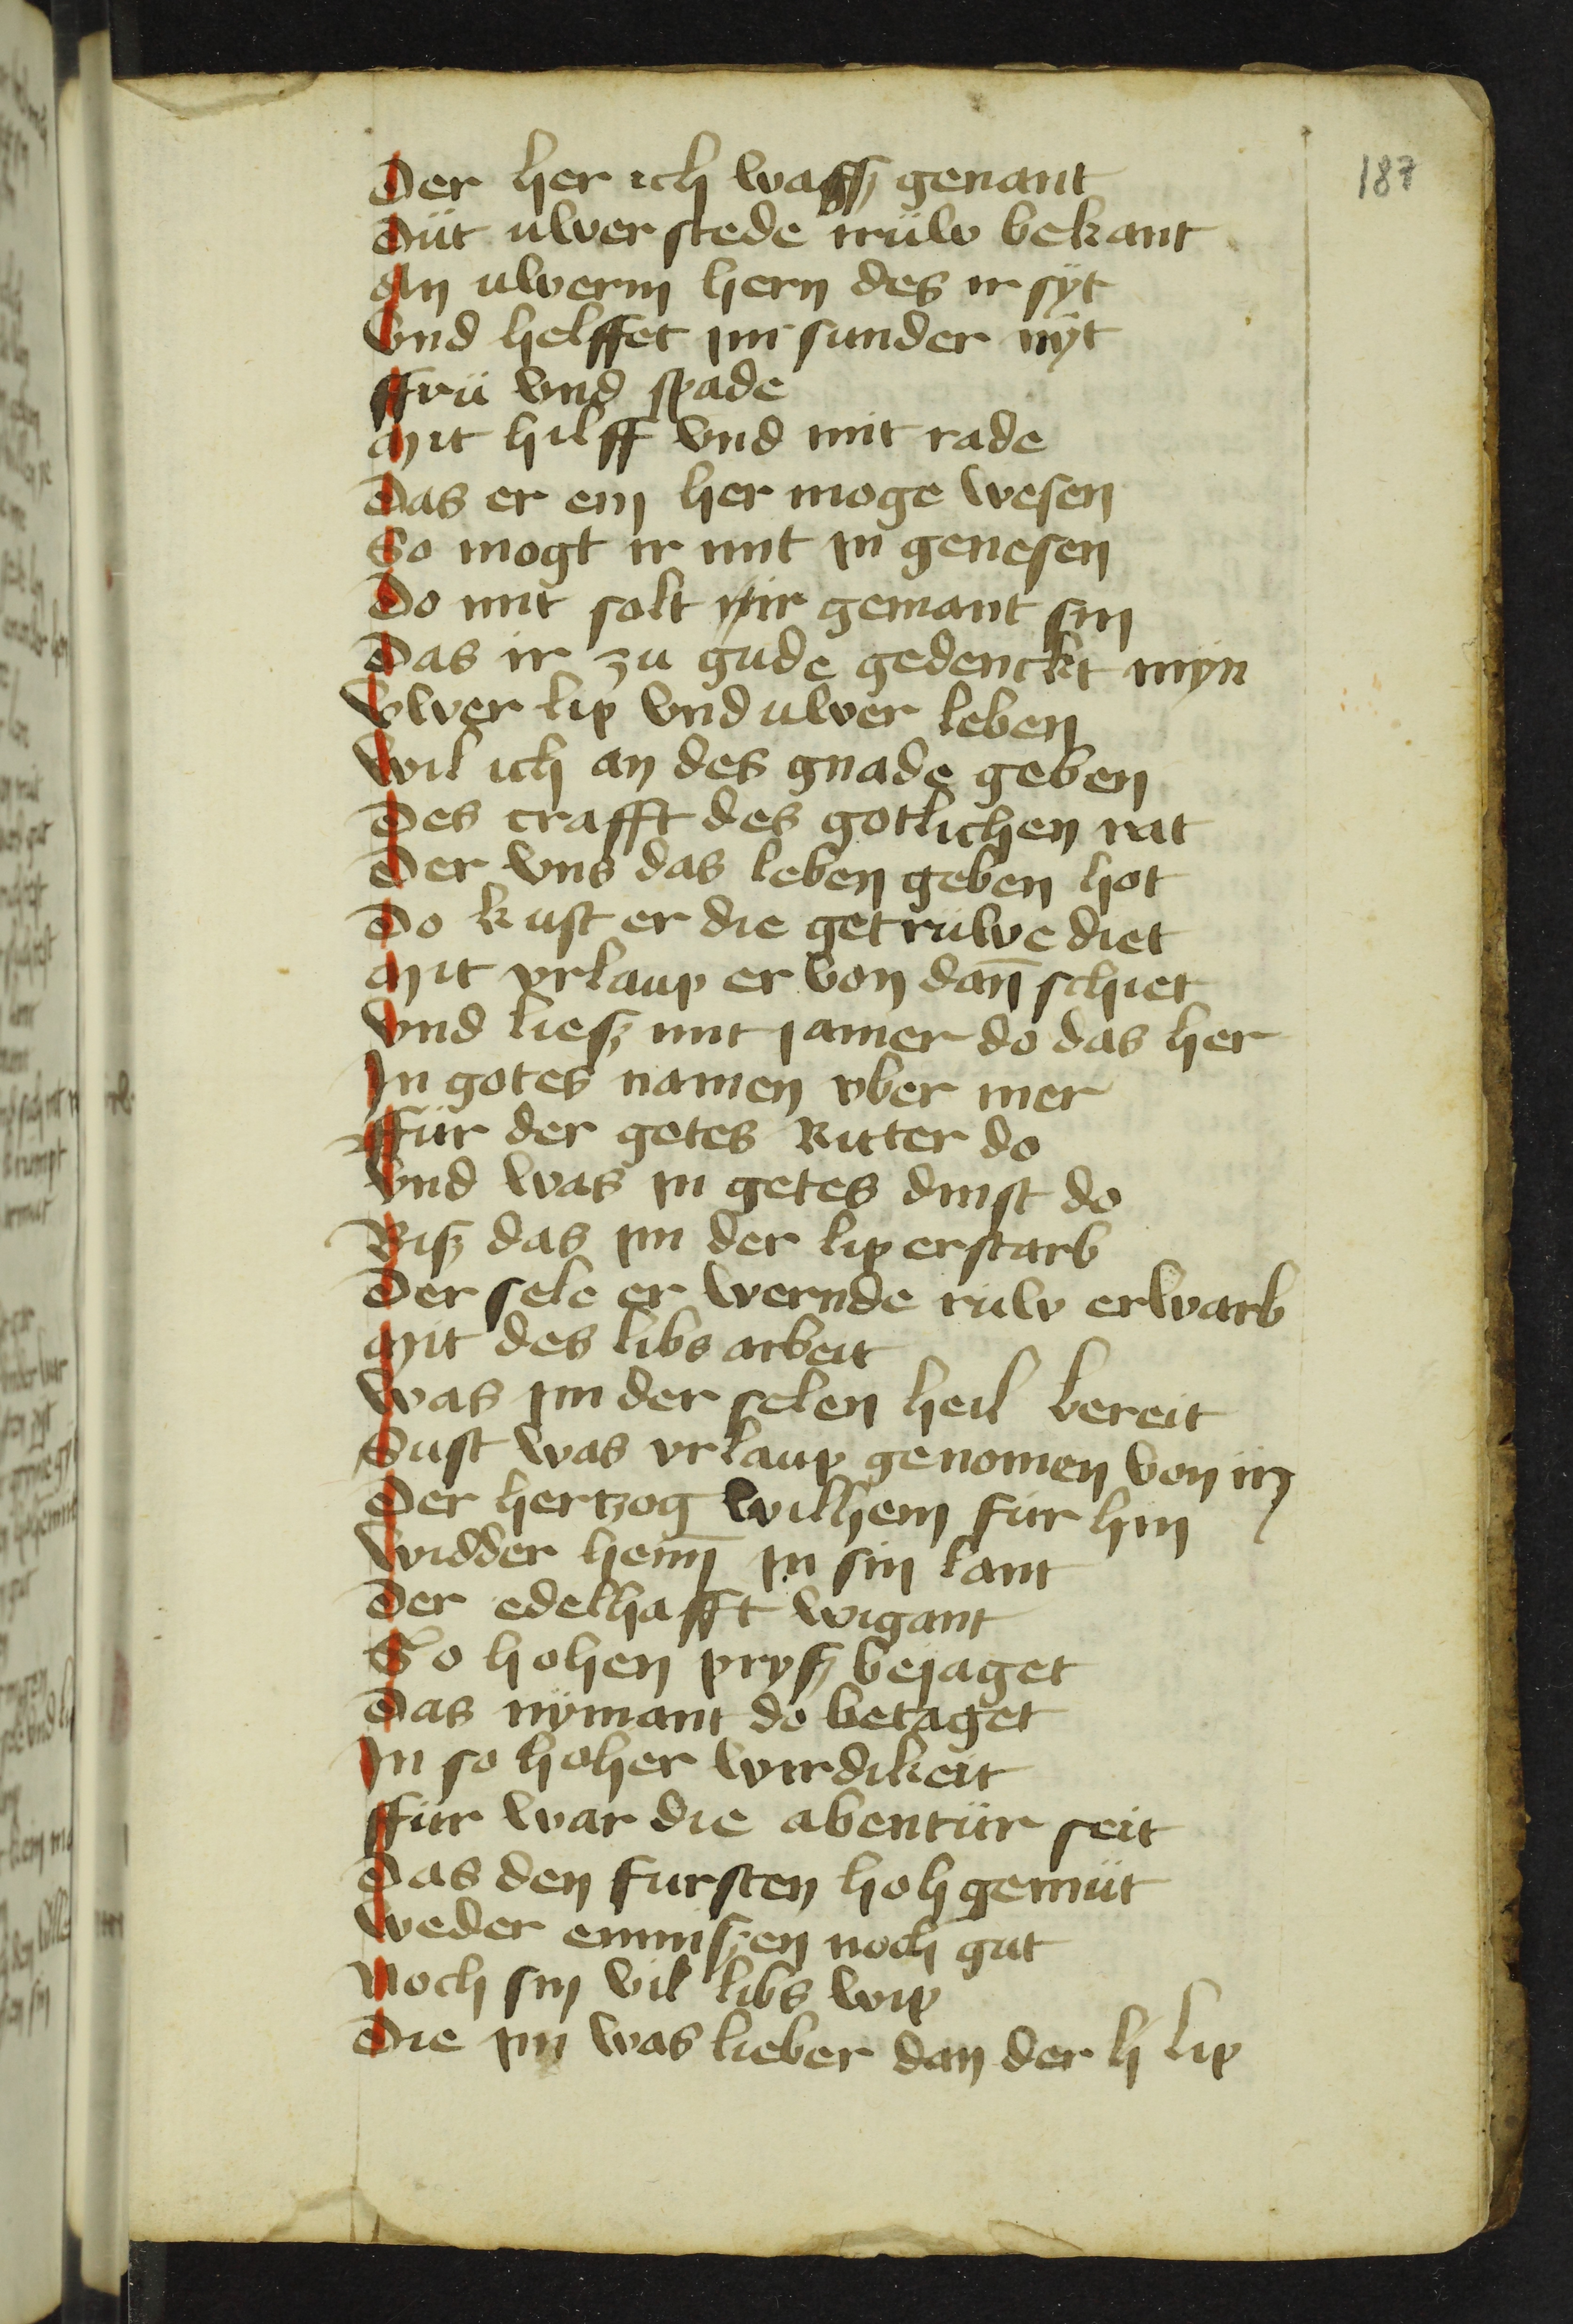 187
Der her ich wassz genant
Düt uwer stede trüw bekant
An uwerm hern des ir syt
Vnd helffet im sunder nyt
ffrü vnd spade
Mit hilff vnd mit rade
Das er ein her moge wesen
So mogt ir mit in genesen
Do mit solt ir gemant sin
Das ir zu gude gedenckt myn
Vwer lip vnd uwer leben
Wil ich an des gnade geben
Des crafft des gotlichen rat
Der vns das leben geben hot
Do kust er die getruwe diet
Mit vrlaup er von dan̄ schiet
Vnd liesz mit jamer do das her
In gotes namen vber mer
ffür der gotes Ritter do
Vnd was in gotes dinst do
Bisz das im der lip erstarb
Der sele er wernde ruw erwarb
Mit des libs arbeit
Was im der selen heil bereit
Sust was vrlaup genomen von in
Der hertzog wilhem für hin
Widder heim̄ in sin lant
Der edelhafft wigant
So hohen prysz bejaget
Das nymant do betaget
In so hoher wirdikeit
ffür war die abentür seit
Das den fursten hoh gemüt
Weder enmiszen noch gut
Noch sin vil libs wip
Die im was lieber dan der h lip